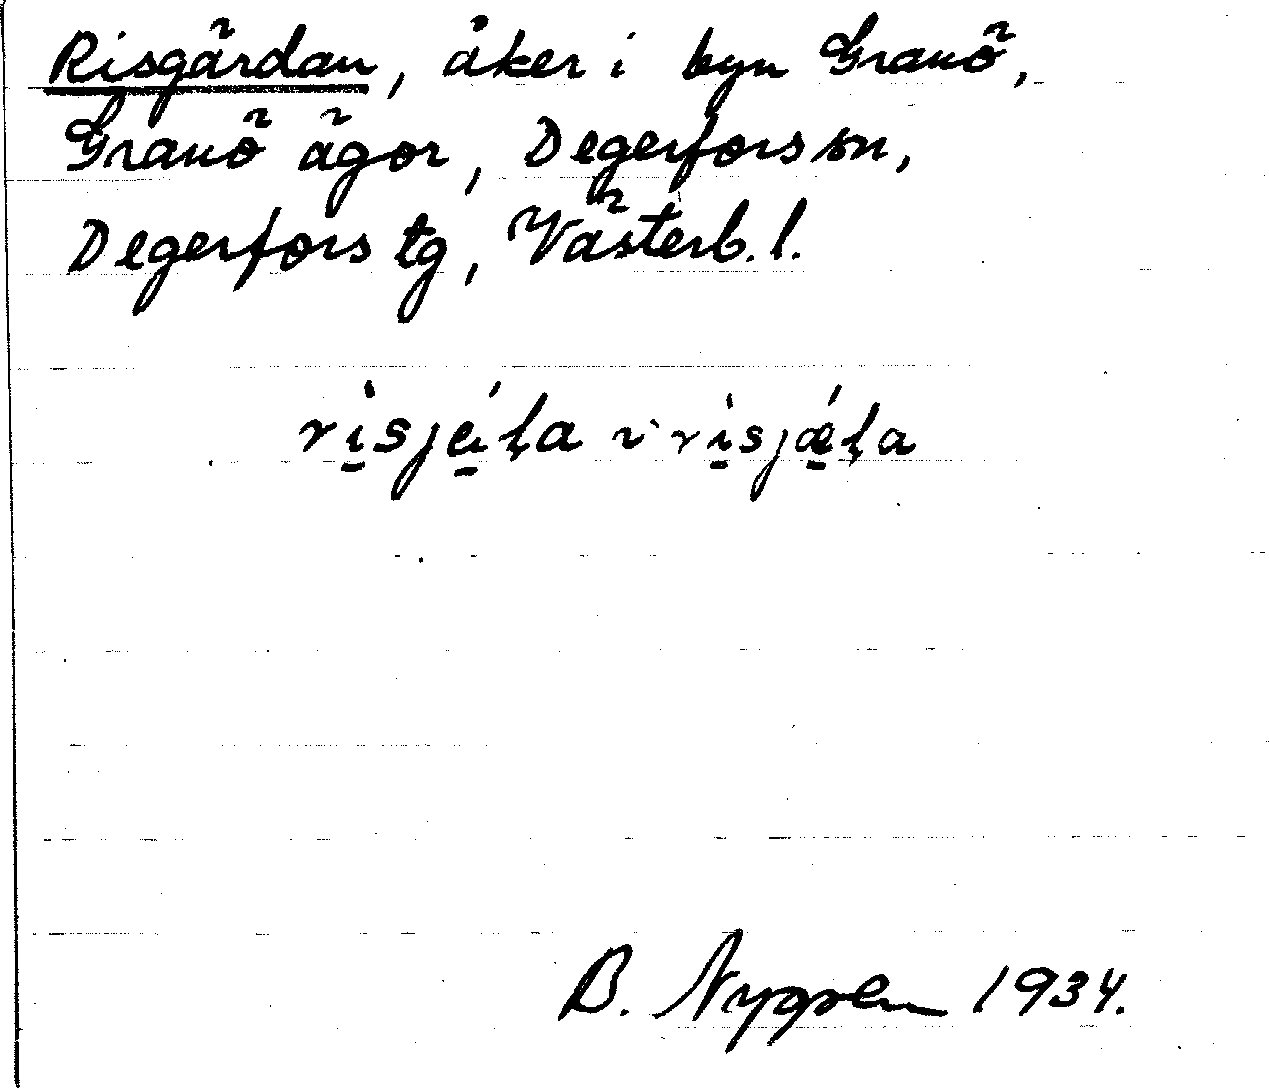 Risgärdan, åker i byn Granö,
Granö ägor, Degerfors sn,
Degerfors tg, Västerb. l.
rìsjǽļa ~ rìsjǽļa
B. Nygren 1934.